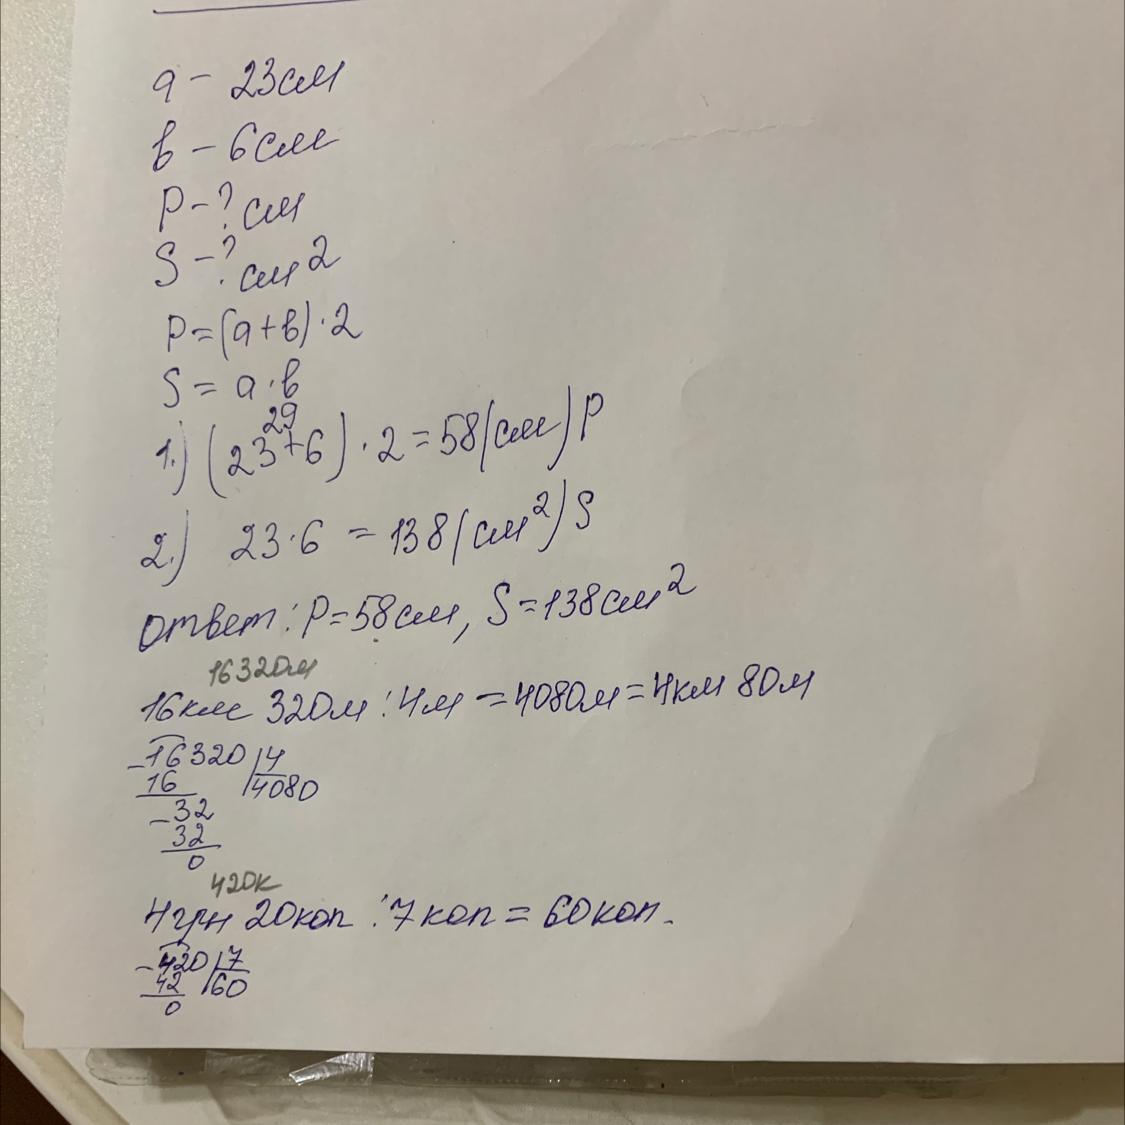 а - 23см
в - 6см
Р - ? см
S - ? см2
Р = (а + в) · 2
S = а · в
29
1.) (23 + 6) · 2 = 58 (см) Р
2.) 23 · 6 = 138 (см²) S
Ответ: Р = 58см, S = 138см²
16320м
16км 320м : 4м = 4080м = 4км 80м
-16320 4
16 4080
-32
32
0
420к
4грн 20коп : 7коп = 60коп.
-420 7
42 60
0